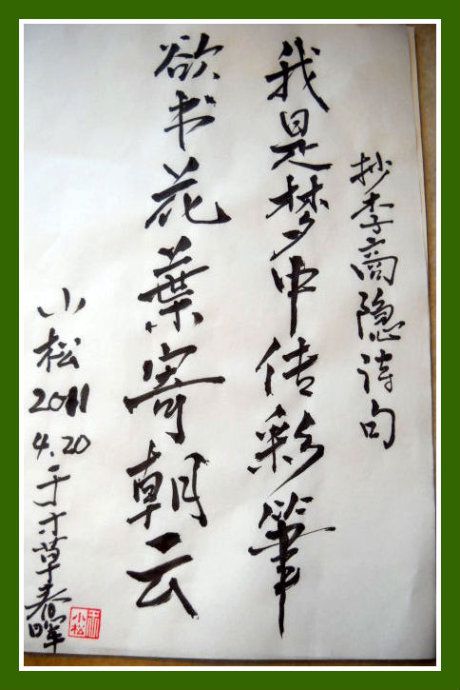 抄李商隐诗句
我是梦中传彩筆
欲书花葉寄朝云
小松
2011
4.20
于寸草春晖
小松